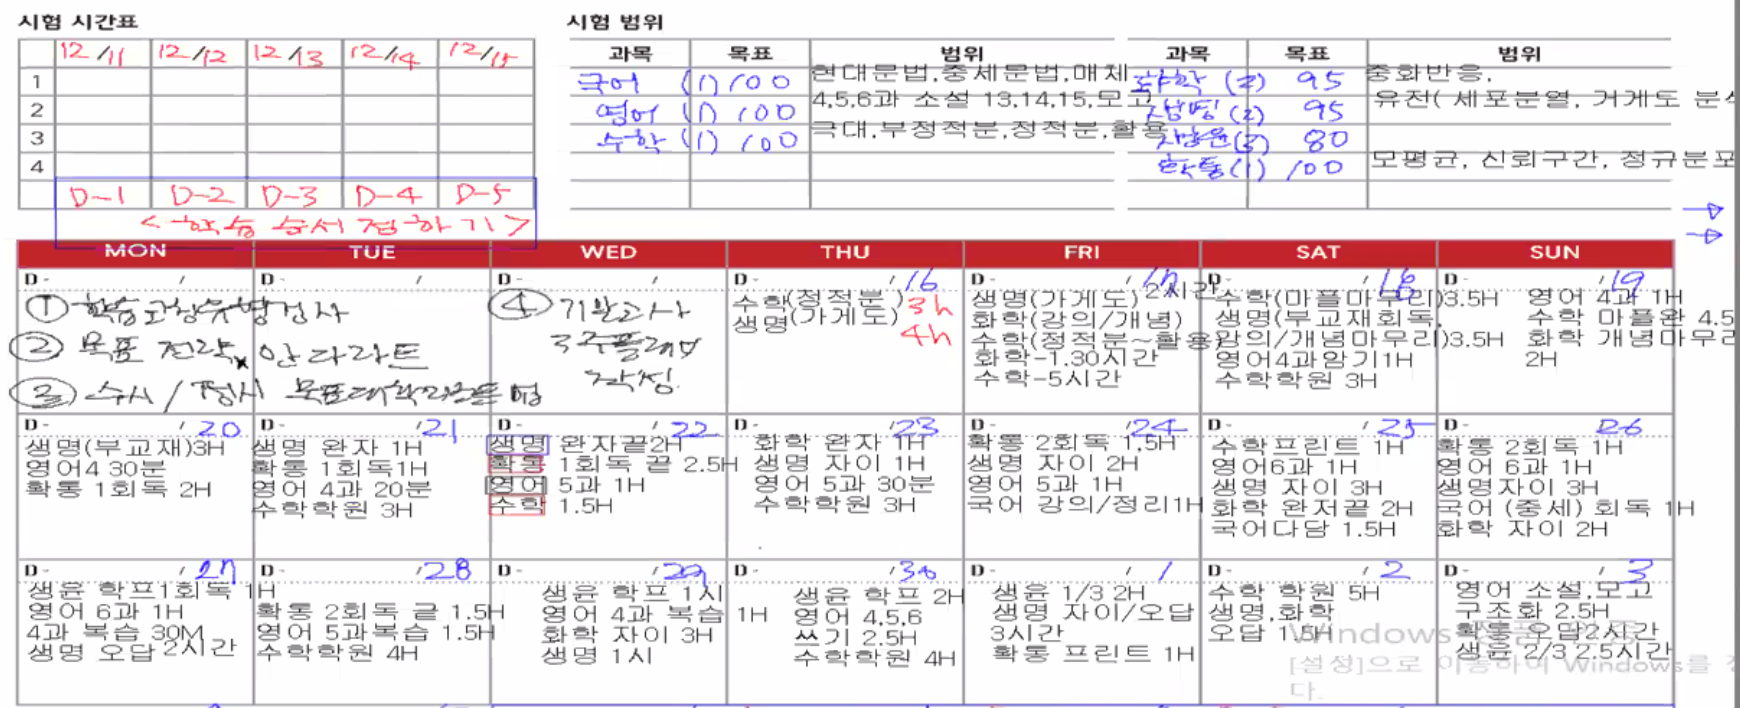 시험 시간표
12/11 12/12 12/13 12/14 12/15
1
2
3
4
D-1 D-2 D-3 D-4 D-5
<학습 순서 정하기>
시험 범위
과목 목표 범위
국어 (1) 100 현대문법,중세문법,매체
영어 (1) 100 4,5,6과 소설 13,14,15,모고
수학 (1) 100 극대,부정적분,정적분,활용
과목 목표 범위
화학 (2) 95 중화반응,
생명 (2) 95 유전( 세포분열, 거게도 분석
생윤 80
확통 (1) 100 모평균, 신뢰구간, 정규분포
MON TUE WED THU FRI SAT SUN
D- /
① 학습 검사
② 목표 전략
③ 수시 / 정시
D- /
D- /
④ 기말고사
3주플래너
작성
D- / 16
수학(정적분 ) 3h
생명(가게도) 4h
D- / 17
생명(가게도) 2시간
화학(강의/개념)
수학(정적분~활용)
화학-1.30시간
수학-5시간
D- / 18
수학(마플마무리)3.5H
생명(부교재회독,
강의/개념마무리)3.5H
영어4과암기1H
수학학원 3H
D- / 19
영어 4과 1H
수학 마플완 4.5
화학 개념마무리
2H
D- / 20
생명(부교재)3H
영어4 30분
확통 1회독 2H
D- / 21
생명 완자 1H
확통 1회독1H
영어 4과 20분
수학학원 3H
D- / 22
생명 완자끝2H
확통 1회독 끝 2.5H
영어 5과 1H
수학 1.5H
D- / 23
화학 완자 1H
생명 자이 1H
영어 5과 30분
수학학원 3H
D- / 24
확통 2회독 1.5H
생명 자이 2H
영어 5과 1H
국어 강의/정리1H
D- / 25
수학프린트 1H
영어6과 1H
생명 자이 3H
화학 완저끝 2H
국어다담 1.5H
D- / 26
확통 2회독 1H
영어 6과 1H
생명자이 3H
국어 (중세) 회독 1H
화학 자이 2H
D- / 27
생윤 학프1회독 1H
영어 6과 1H
4과 복습 30M
생명 오답 2시간
D- / 28
확통 2회독 끝 1.5H
영어 5과복습 1.5H
수학학원 4H
D- / 29
생윤 학프 1시
영어 4과 복습 1H
화학 자이 3H
생명 1시
D- / 30
생윤 학프 2H
영어 4.5.6
쓰기 2.5H
수학학원 4H
D- / 1
생윤 1/3 2H
생명 자이/오답
3시간
확통 프린트 1H
D- / 2
수학 학원 5H
생명,화학
오답 1.5H
D- / 3
영어 소설,모고
구조화 2.5H
확통 오답2시간
생윤 2/3 2.5시간
Windows
[설정]으로 이동하여 Windows를
다.